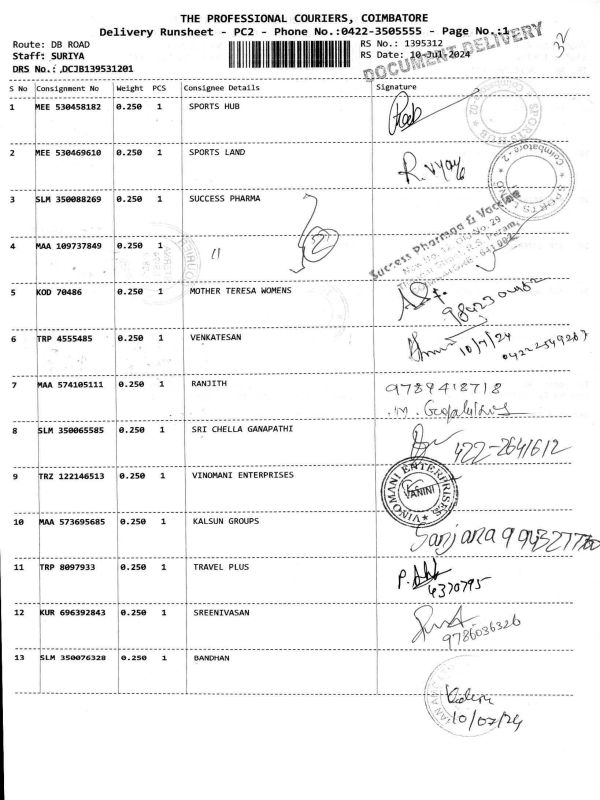 THE PROFESSIONAL COURIERS, COIMBATORE
Delivery Runsheet - PC2 - Phone No.:0422-3505555 - Page No.:1
Route: DB ROAD RS No.: 1395312
Staff: SURIYA RS Date: 10-Jul-2024
DRS No.: ,DCJB139531201
DOCUMENT DELIVERY
S No Consignment No Weight PCS Consignee Details Signature
1 MEE 530458182 0.250 1 SPORTS HUB
SPORTS HUB
2 MEE 530469610 0.250 1 SPORTS LAND R. Vyay
Coimbatore - 2
3 SLM 350088269 0.250 1 SUCCESS PHARMA
Success Pharma & Vaccine
4 MAA 109737849 0.250 1 11
2
5 KOD 70486 0.250 1 MOTHER TERESA WOMENS
6 TRP 4555485 0.250 1 VENKATESAN 10/7/24
7 MAA 574105111 0.250 1 RANJITH 9789418718
8 SLM 350065585 0.250 1 SRI CHELLA GANAPATHI 422-2641612
9 TRZ 122146513 0.250 1 VINOMANI ENTERPRISES
VINOMANI ENTERPRISES
VANINI
10 MAA 573695685 0.250 1 KALSUN GROUPS Sanjana
11 TRP 8097933 0.250 1 TRAVEL PLUS
4370795
12 KUR 696392843 0.250 1 SREENIVASAN
9786036326
13 SLM 350076328 0.250 1 BANDHAN
10/07/24